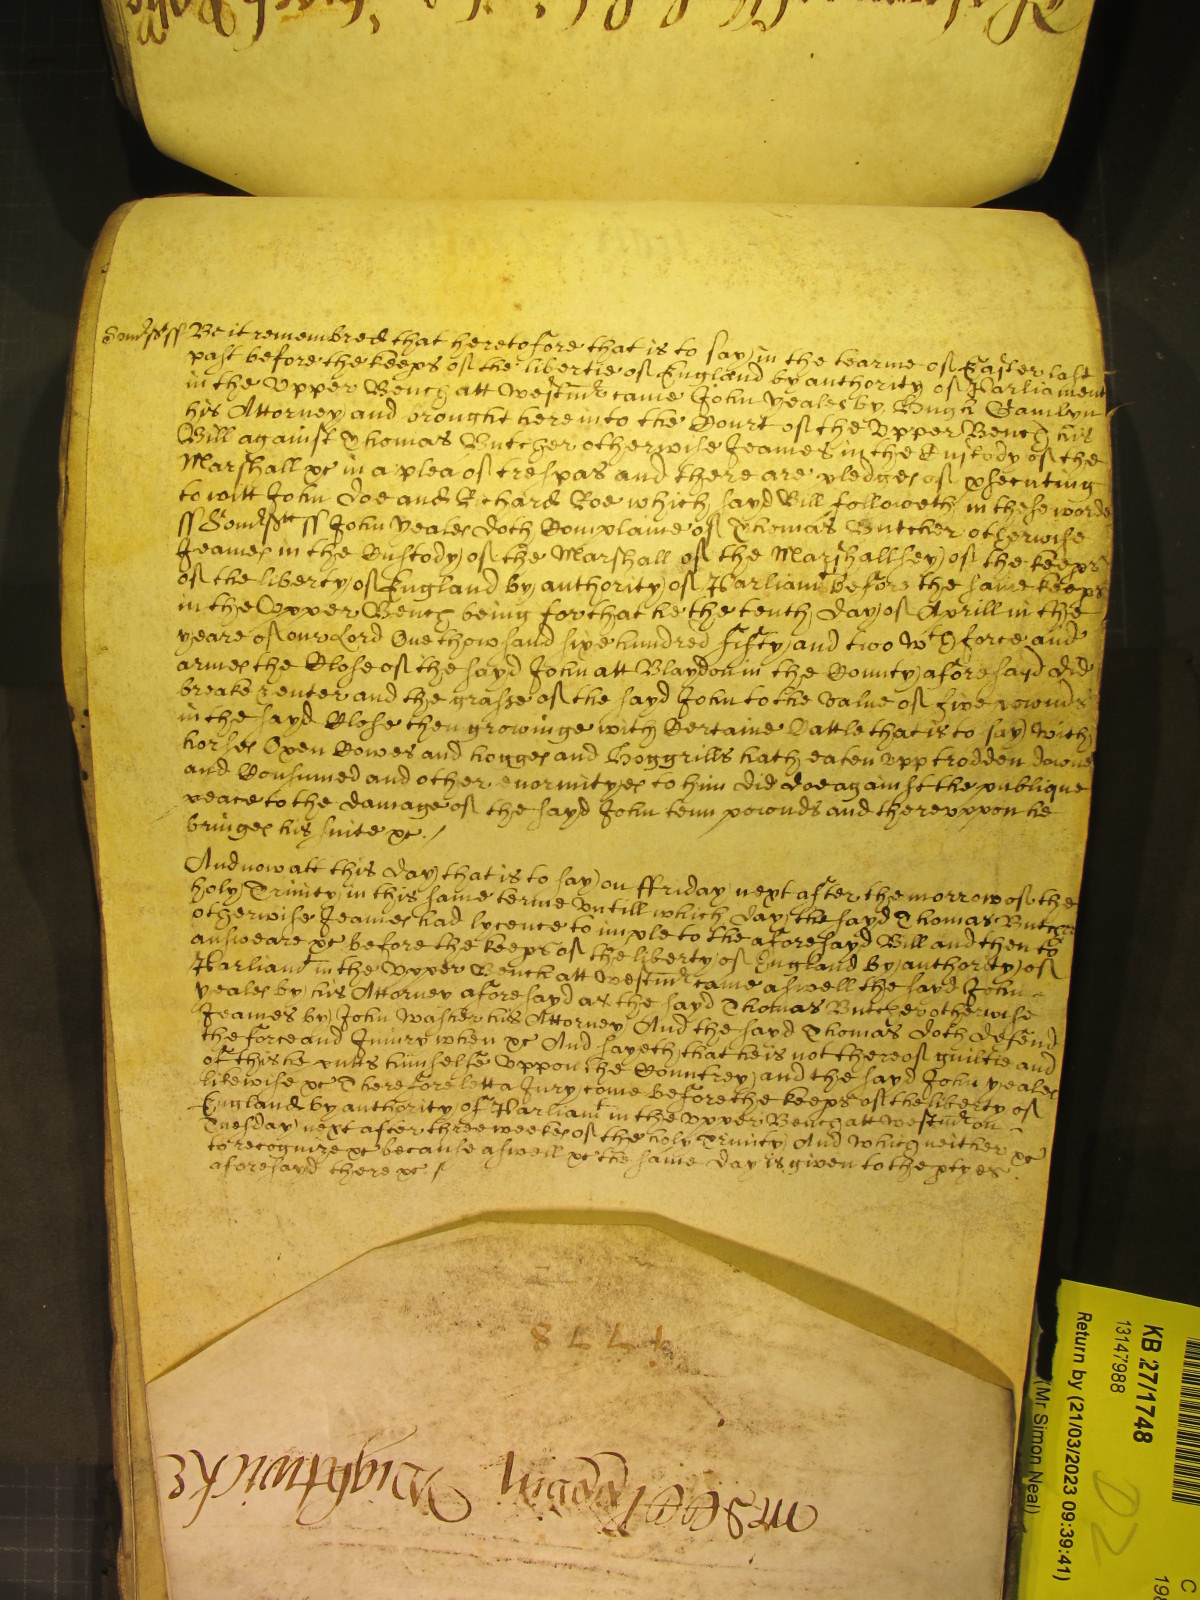 Somsett ss Be it remembred that heretofore that is to say in the tearme of Easter last
past before the keeps of the libertie of England by authority of Parliament
in the Upper Bench att Westmr came John Yeales by Hugh Gamlyn
his Attorney and brought here into the Court of the Upper Bench his
Bill against Thomas Butcher otherwise Jeames in the Custody of the
Marshall &c in a plea of trespas and there are pledges of psecuting
to witt John Doe and Richard Roe which sayd Bill followeth in these words
ss Somsett ss John Yeales doth Complaine of Thomas Butcher otherwise
Jeames in the Custody of the Marshall of the Marshallsey of the keeps
of the liberty of England by authority of Parliamt before the same keeps
in the Upper Bench being for that he the tenth day of Aprill in the
yeare of our Lord One thowsand sixe hundred fifty and two wth force and
armes the Close of the sayd John att Blaydon in the County aforesayd did
breake & enter and the grasse of the sayd John to the value of five pownds
in the sayd Close then growinge with Certaine Cattle that is to say with
horses Oxen Cowes and hogges and Hoggrills hath eaten upp trodden downe
and Consumed and other enormityes to him did doe against the publique
peace to the damage of the sayd John tenn pownds and thereuppon he
bringes his suite &c /
And now att this day that is to say on ffriday next after the morrow of the
holy Trinity in this same terme Untill which day the sayd Thomas Butcher
otherwise Jeames had lycence to imple to the aforesayd Bill and then to
answeare &c before the keeps of the liberty of England by authority of
Parliamt in the Upper Bench att Westmr came aswell the sayd John
Yeales by his Attorney aforesayd as the sayd Thomas Butcher otherwise
Jeames by John Washer his Attorney And the sayd Thomas doth defend
the force and Injury when &c And sayeth that he is not thereof guiltie and
of this he putts himselfe Uppon the Countrey and the sayd John Yeales
likewise &c Therefore lett a Jury come before the keeps of the liberty of
England by authority of Parliamt in the Upper Bench att Westmr on
Tuesday next after three weekes of the holy Trinity And which neither &c
to recognize &c because aswell &c the same day is given to the ptyes
aforesayd there &c /
1778
Wightwicke
KB 27/1748
13147988
Return by (21/03/2023 09:39:41)
(Mr Simon Neal)
D2